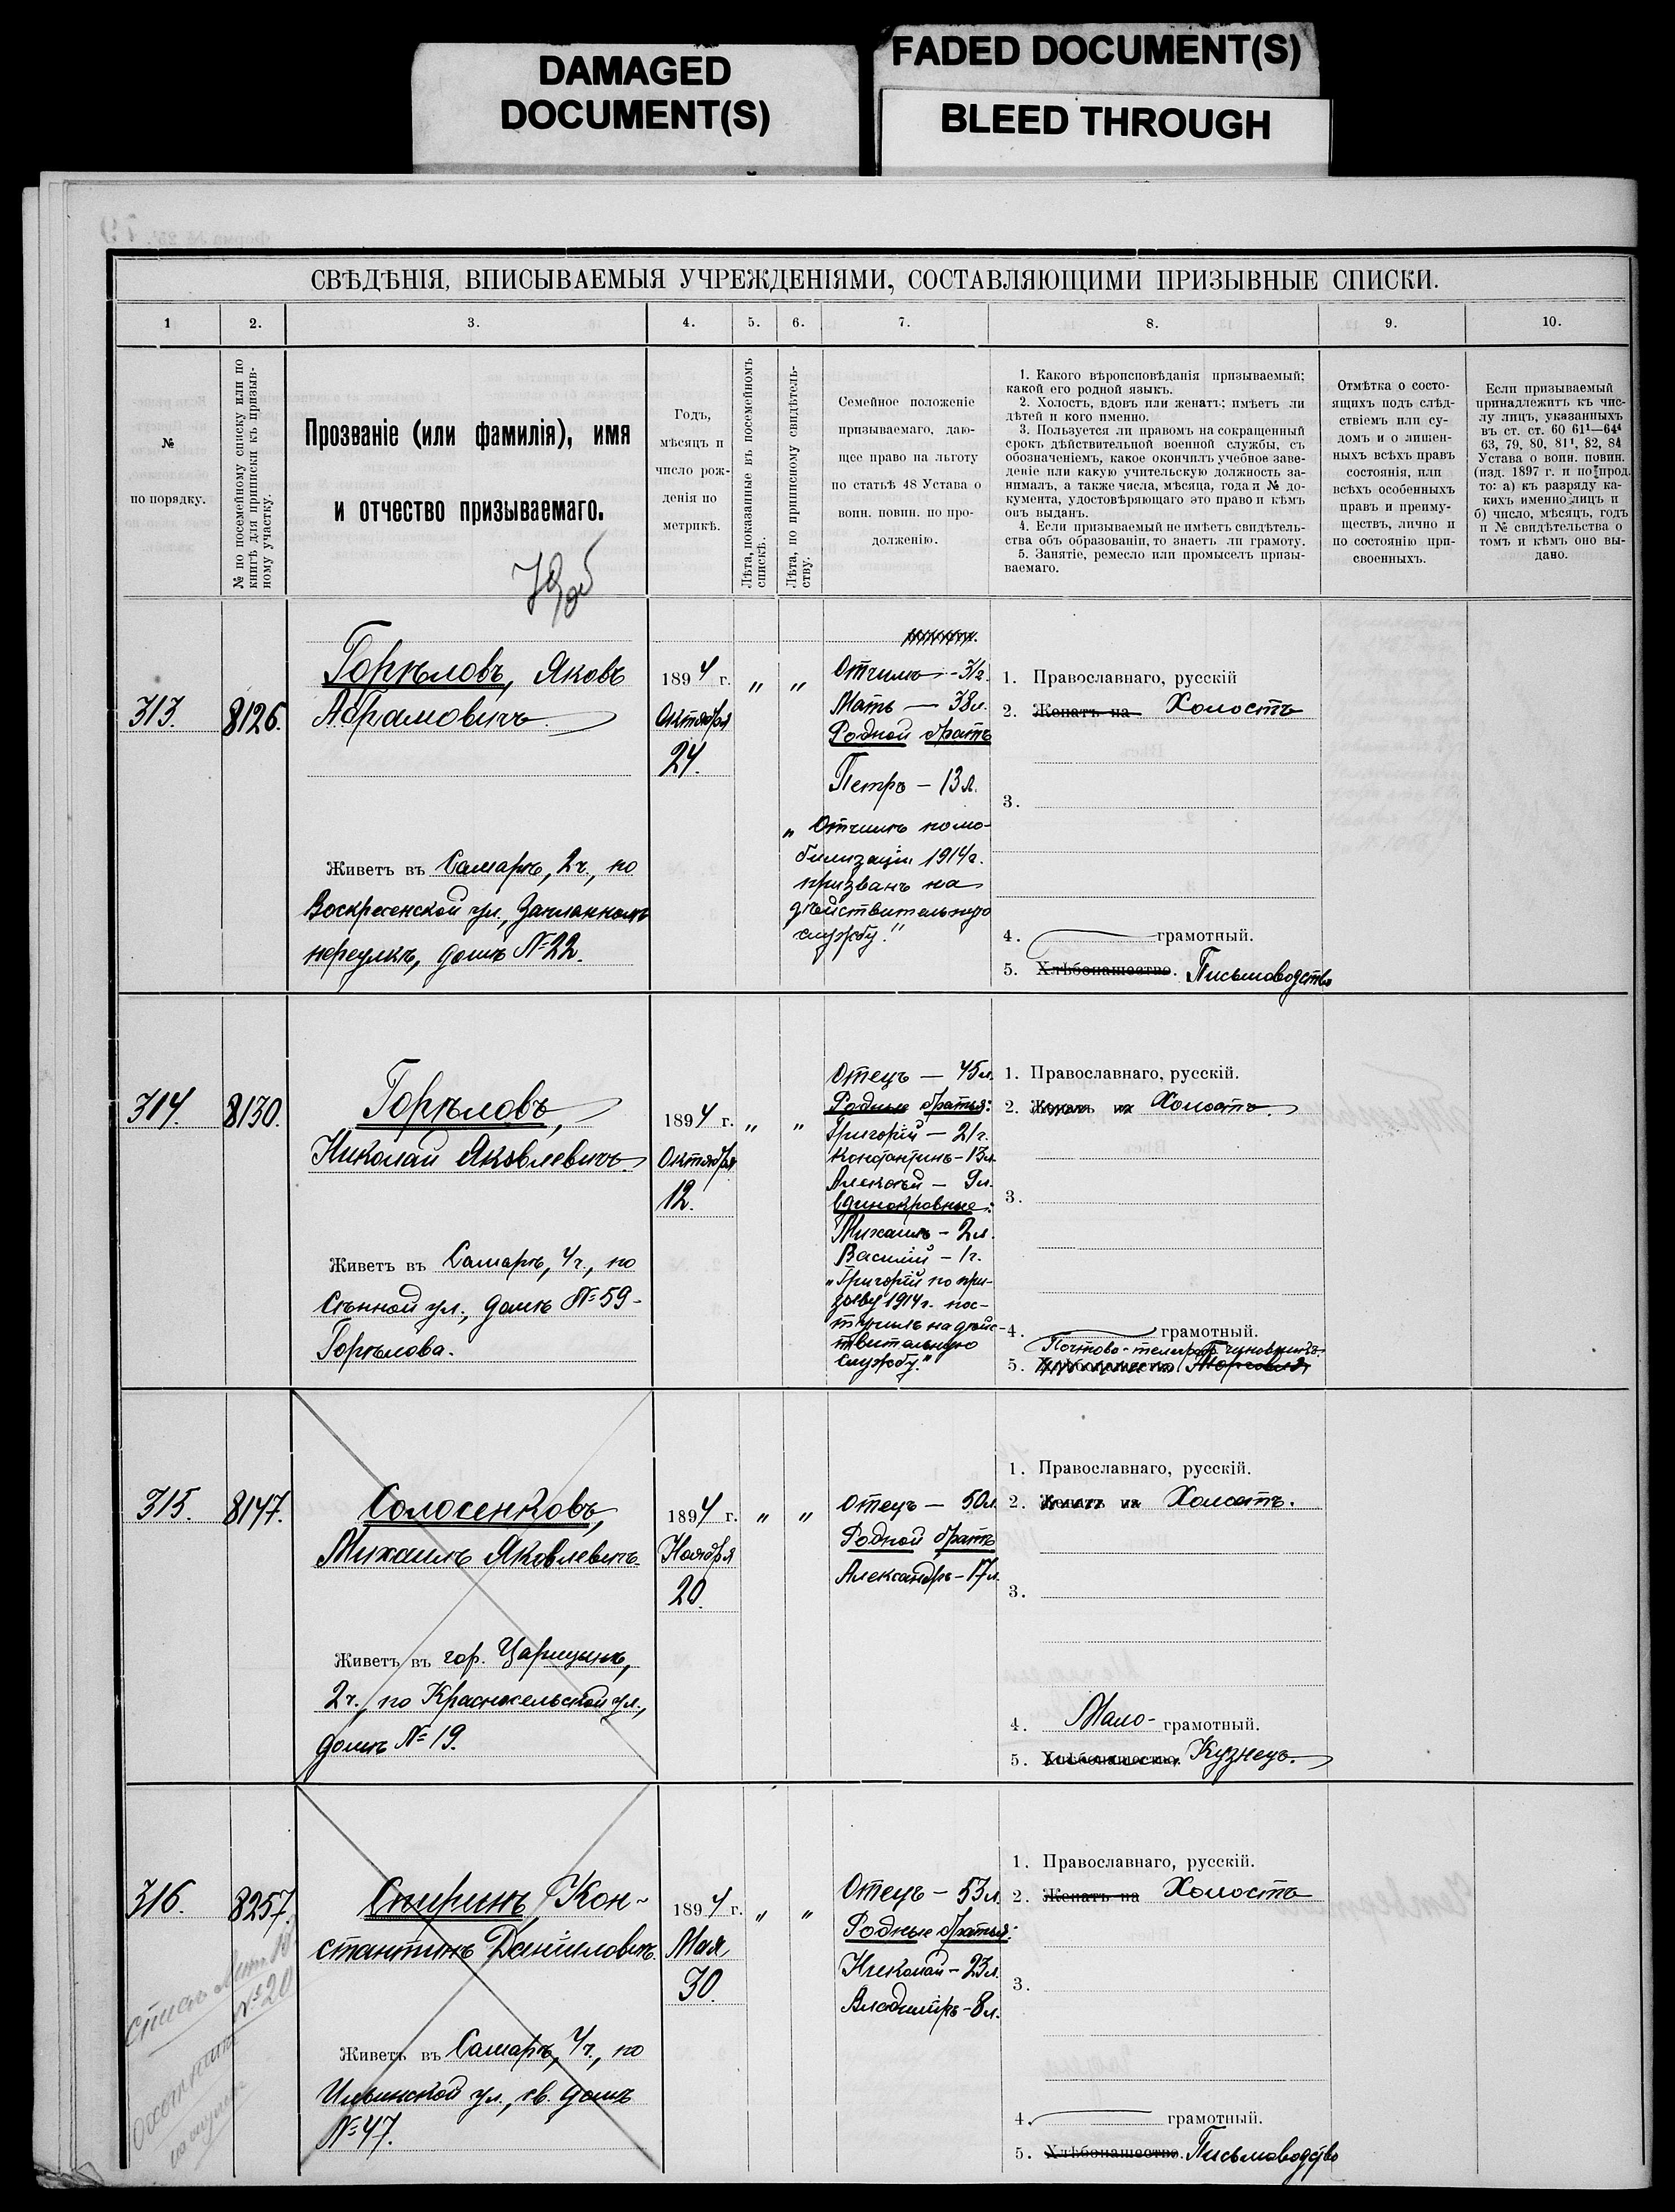 DAMAGED
DOCUMENT(S)
FADED DOCUMENT(S)
BLEED THROUGH
СВѢДѢНІЯ, ВПИСЫВАЕМЫЯ УЧРЕЖДЕНІЯМИ, СОСТАВЛЯЮЩИМИ ПРИЗЫВНЫЕ СПИСКИ.
1 2. 3. 4. 5. 6. 7. 8. 9. 10.
№
по порядку.
№ по посемейному списку или по
книгѣ для приписки къ призыв-
ному участку.
Прозваніе (или фамилія), имя
и отчество призываемаго.
Годъ,
мѣсяцъ и
число рож-
денія по
метрикѣ.
Лѣта, показанные въ посемейномъ
спискѣ.
Лѣта, по приписному свидѣтель-
ству.
Семейное положеніе
призываемаго, даю-
щее право на льготу
по статьѣ 48 Устава о
воин. повин. по про-
долженію.
1. Какого вѣроисповѣданія призываемый;
какой его родной языкъ.
2. Холостъ, вдовъ или женатъ; имѣетъ ли
дѣтей и кого именно.
3. Пользуется ли правомъ на сокращенный
срокъ дѣйствительной военной службы, съ
обозначеніемъ, какое окончилъ учебное заве-
деніе или какую учительскую должность за-
нималъ, а также числа, мѣсяца, года и № до-
кумента, удостовѣряющаго это право и кѣмъ
онъ выданъ.
4. Если призываемый не имѣетъ свидѣтель-
ства объ образованіи, то знаетъ ли грамоту.
5. Занятіе, ремесло или промыселъ призы-
ваемаго.
Отмѣтка о состо-
ящихъ подъ слѣд-
ствіемъ или су-
домъ и о лишен-
ныхъ всѣхъ правъ
состоянія, или
всѣхъ особенныхъ
правъ и преиму-
ществъ, лично и
по состоянію при-
своенныхъ.
Если призываемый
принадлежитъ къ чис-
лу лицъ, указанныхъ
въ ст. ст. 60 61¹—64⁴
63, 79, 80, 81¹, 82, 84
Устава о воин. повин.
(изд. 1897 г. и по прод.
то: а) къ разряду ка-
кихъ именно лицъ и
б) число, мѣсяцъ, годъ
и № свидѣтельства о
томъ и кѣмъ оно вы-
дано.
313.
8126.
Горѣловъ, Яковъ
Абрамовичъ
Живетъ въ Самарѣ, 2ч., по
Воскресенской ул.,
переулкъ, домъ № 22.
1894 г.
Октября
24.
" "
Отчимъ - 31г.
Мать — 38л.
Родной братъ
Петръ — 13л.
"Отчимъ по мо-
билизаціи 1914г.
призванъ на
дѣйствительную
службу."
1. Православнаго, русскій
2. Женатъ на Холостъ
3.
4. грамотный.
5. Хлѣбопашество. Письмоводство
314.
8130.
Горѣловъ,
Николай Яковлевичъ
Живетъ въ Самарѣ, 4ч., по
Сѣнной ул., домъ № 59-
Горѣлова.
1894 г.
Октября
12.
" "
Отецъ — 45л.
Родные братья:
Григорій — 21г.
Константинъ - 13л.
Алексѣй — 9л.
Единокровные:
Михаилъ - 2л.
Василій - 1г.
"Григорій по при-
зыву 1914г. пос-
тупилъ на дѣйс-
твительную
службу."
1. Православнаго, русскій.
2. Женатъ на Холостъ.
3.
4. грамотный.
Почтово-телеграф. чиновникъ.
5. Хлѣбопашество. Торговля
315.
8147.
Солосенковъ,
Михаилъ Яковлевичъ.
Живетъ въ гор. Царицынѣ,
2ч., по Красносельской ул.,
домъ № 19.
1894 г.
Ноября
20.
" "
Отецъ — 50л.
Родной братъ
Александръ - 17л.
1. Православнаго, русскій.
2. Женатъ на Холостъ.
3.
4. Мало- грамотный.
5. Хлѣбопашество Кузнецъ.
316.
8257.
Спиринъ, Кон-
стантинъ Даніиловичъ.
Живетъ въ Самарѣ, 4ч., по
Ильинской ул., св. домъ
№ 47.
1894 г.
Мая
30.
" "
Отецъ - 53л.
Родные братья:
Николай - 23л.
Владиміръ - 8л.
1. Православнаго, русскій.
2. Женатъ на Холостъ
3.
4. грамотный.
5. Хлѣбопашество. Письмоводство
№ 20